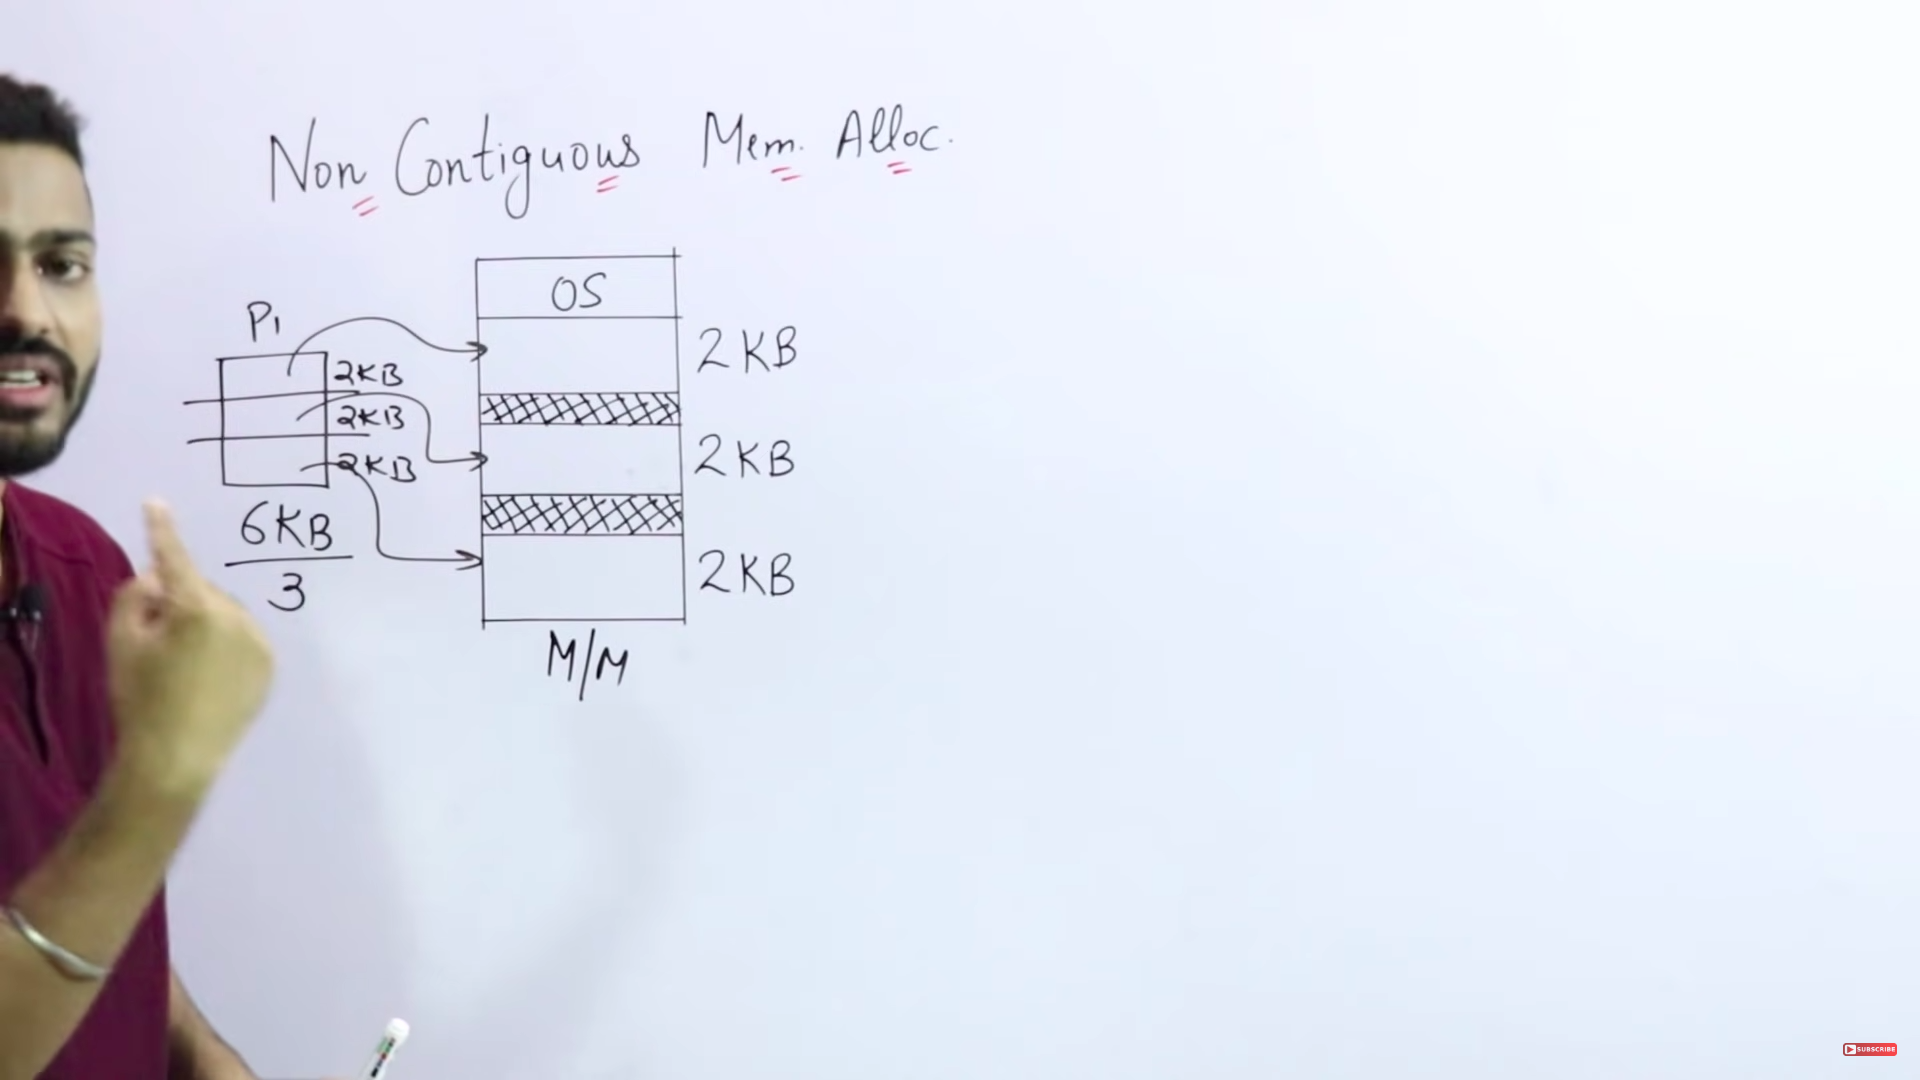 Non Contiguous Mem. Alloc.
OS
P1
2KB
2KB
2KB
2KB
2KB
2KB
6KB
3
M/M
SUBSCRIBE